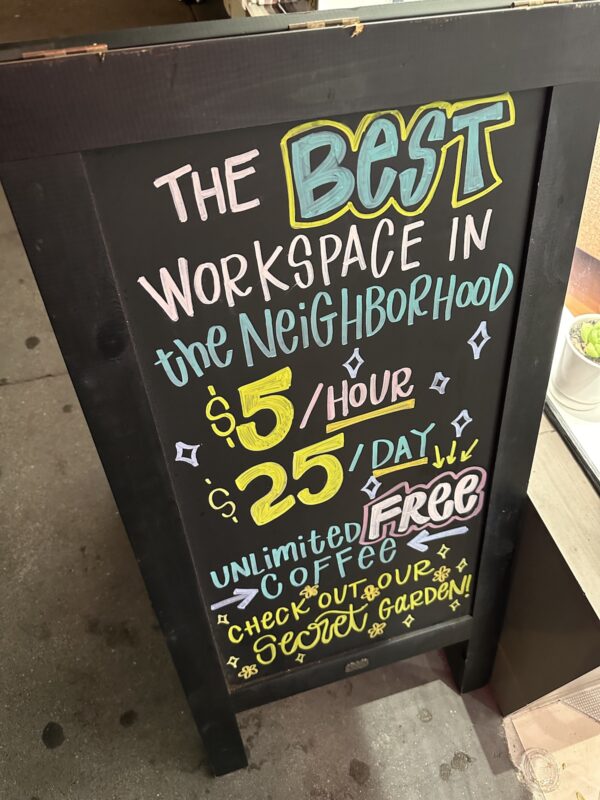 THE BEST
WORKSPACE IN
the NEiGHBORHOOD
$5/HOUR
$25/DAY
UNLimiteD FRee
COFFee
CHECK OUT OUR
Secret GARDeN!